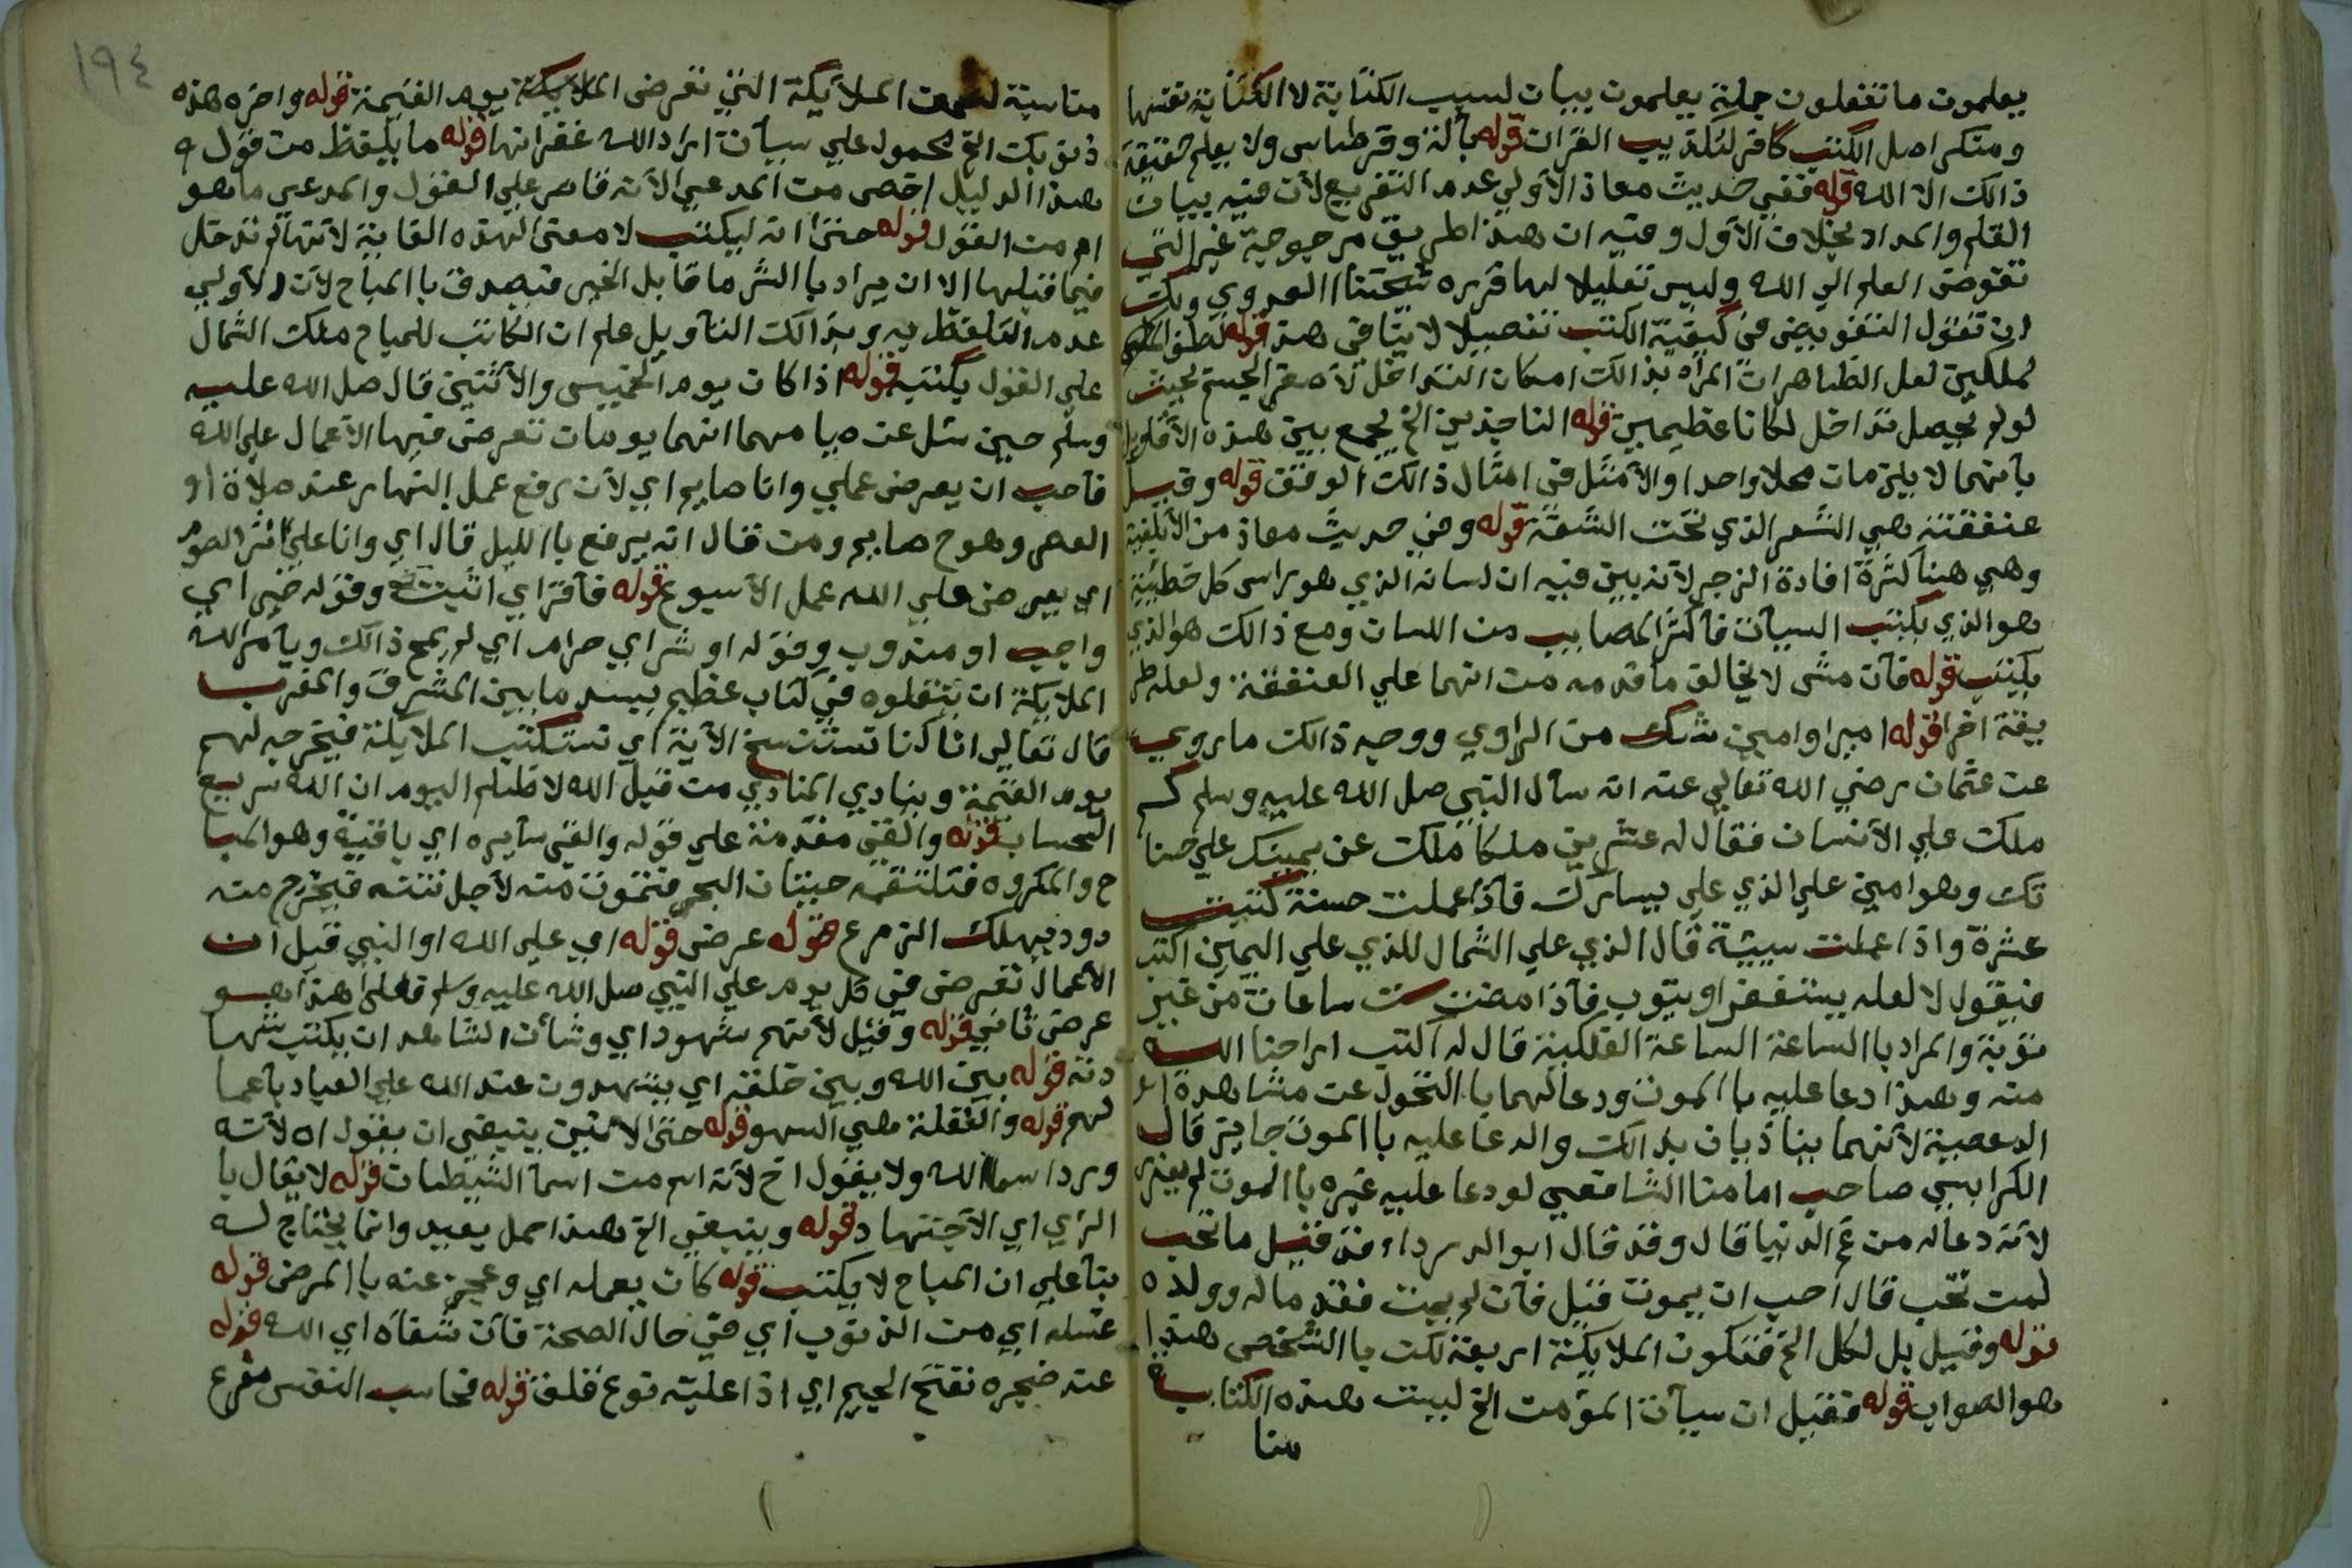 يعلمون ما تفعلون جملة يعلمون بيان لسبب الكتابة لا الكتابة نفسها
ومنكر اصل الكتب كافر لتكذيب القران قوله بآلة وقرطاس ولا يعلم حقيقة
ذالك الا الله قوله ففي حديث معاذ الأولي عدم التفريع لأن فيه بيان
القلم والمداد بخلاف الأول وفيه ان هذا طريق مرجوحة غير التي
تفوض العلم الي الله وليس تعليلا لها قرره شيخنا العدوي ولك
ان تقول التفويض في كيفية الكتب تفصيلا لا ينافي هذا قوله لطف الله
لملكين لعل الظاهر ان المراد بذالك امكان التداخل لا صغر الجسم بحيث
لو لم يحصل تداخل لكانا عظيمين قوله الناجذين الخ يجمع بين هذه الأقاويل
بأنهما لا يلزمان محلا واحدا والأمثل في امثال ذالك الوقف قوله وقيل
عنفقته هي الشعر الذي تحت الشفة قوله وفي حديث معاذ من الأبلغية
وهي هنا كثرة افادة الزجر لأنه بين فيه ان لسانه الذي هو راس كل خطيئة
هو الذي يكتب السيآت فأكثر المصايب من اللسان ومع ذالك هو الذي
يكتب قوله فأن مشى لا يخالف ما قدمه من انهما علي العنفقة ولعله طر
يقة اخرا قوله اميرا وامين شك من الراوي ووجه ذالك ما روي
عن عثمان رضي الله تعالي عنه انه سأل النبي صل الله عليه وسلم كم
ملك علي الأنسان فقال له عشرين ملكا ملك عن يمينك علي حسنا
تك وهو امين علي الذي علي يسارك فأذا عملت حسنة كتبت
عشرة واذا عملت سيئة قال الذي علي الشمال للذي علي اليمين اكتب
فيقول لا لعله يستغفر او يتوب فأذا مضت ست ساعات من غير
توبة والمراد باالساعة الساعة الفلكية قال له آكتب اراحنا الله
منه وهذا دعا عليه باالموت ودعا لهما باالتحول عن مشاهدة
المعصية لأنهما يتأذيان بذالك والدعا عليه باالموت جايز قال
الكرابسي صاحب امامنا الشافعي لو دعا عليه غيره باالموت لم يعزر
لأنه دعا له من غم الدنيا قال وقد قال ابو الدرداء قيل ما تحب
لمن تحب قال احب ان يموت قيل فأن لم يمت فقد ماله وولده
قوله وقيل بل لكل الخ فتكون الملايكة اربعة لكن باالشخص هذا
هو الصواب قوله فقيل ان سيآت المؤمن الخ ليست هذه الكتابة
منا
١٩٤
مناسبة الملايكة التي تعرض الملايكة يوم القيمة قوله واخره هذه
ذنوبك الخ محمول علي سيآت اراد الله غفرانها قوله ما يلفظ من قول
هذا الدليل اخص من المدعي لأنه قاصر علي القول والمدعي ما هو
اعم من القول قوله حتى انه ليكتب لا معنى لهذه الغاية لأنها لم تدخل
فيما قبلها الا ان يراد باالشر ما قابل الخير فيصدق باالمباح لأن الأولي
عدم التلفظ به وبذالك التأويل علم ان الكاتب للمباح ملك الشمال
علي القول بكتبه قوله اذا كان يوم الخميس والأثنين قال صل الله عليه
وسلم حين سئل عن صيامهما انهما يومان تعرض فيها الأعمال علي الله
فأحب ان يعرض عملي وانا صايم اي لأن رفع عمل النهار عند صلاة او
العصر وهو ح صايم ومن قال انه يرفع باالليل قال اي وانا علي اثر الصوم
اي يعرض علي الله عمل الأسبوع قوله فأقر اي اثبت وقوله خير اي
واجب او مندوب وقوله او شر اي حرام اي لم يمح ذالك ويآمر الله
الملايكة ان ينقلوه في كتاب عظيم يسد ما بين المشرق والمغرب
قال تعالي انا كنا نستنسخ الآية اي نستكتب الملايكة فيخرجه لهم
يوم القيمة وينادي المنادي من قبل الله لا ظلم اليوم ان الله سريع
الحساب قوله والقي مقدمة علي قوله والقي سآيره اي باقية وهو المبا
ح والمكروه فتلتقمه حيتان البحر فتموت منه لأجل نتنه فيخرج منه
دود يهلك الزرع قوله عرض قوله اي علي الله او النبي قيل ان
الأعمال تعرض في كل يوم علي النبي صل الله عليه وسلم فعلي هذا هو
عرض ثاني قوله وقيل لأنهم شهود اي وشأن الشاهد ان يكتب شها
دته قوله بين الله وبين خلقه اي يشهدون عند الله علي العباد بأعما
لهم قوله والغفلة هي السهو قوله حتى الأنين ينبغي ان يقول اه لأنه
ورد اسما لله ولا يقول اخ لأنه اسم من اسمآ الشيطان قوله لا يقال با
الرأي اي الأجتهاد قوله وينبغي الخ هذا حمل بعيد وانما يحتاج له
بنآ علي ان المباح لا يكتب قوله كان يعمله اي وعجز عنه باالمرض قوله
غسله اي من الذنوب اي في حال الصحة فأن شفآه اي الله قوله
عند ضجره بفتح الجيم اي اذا عليه نوع قلق قوله فحاسب النفس مفرع